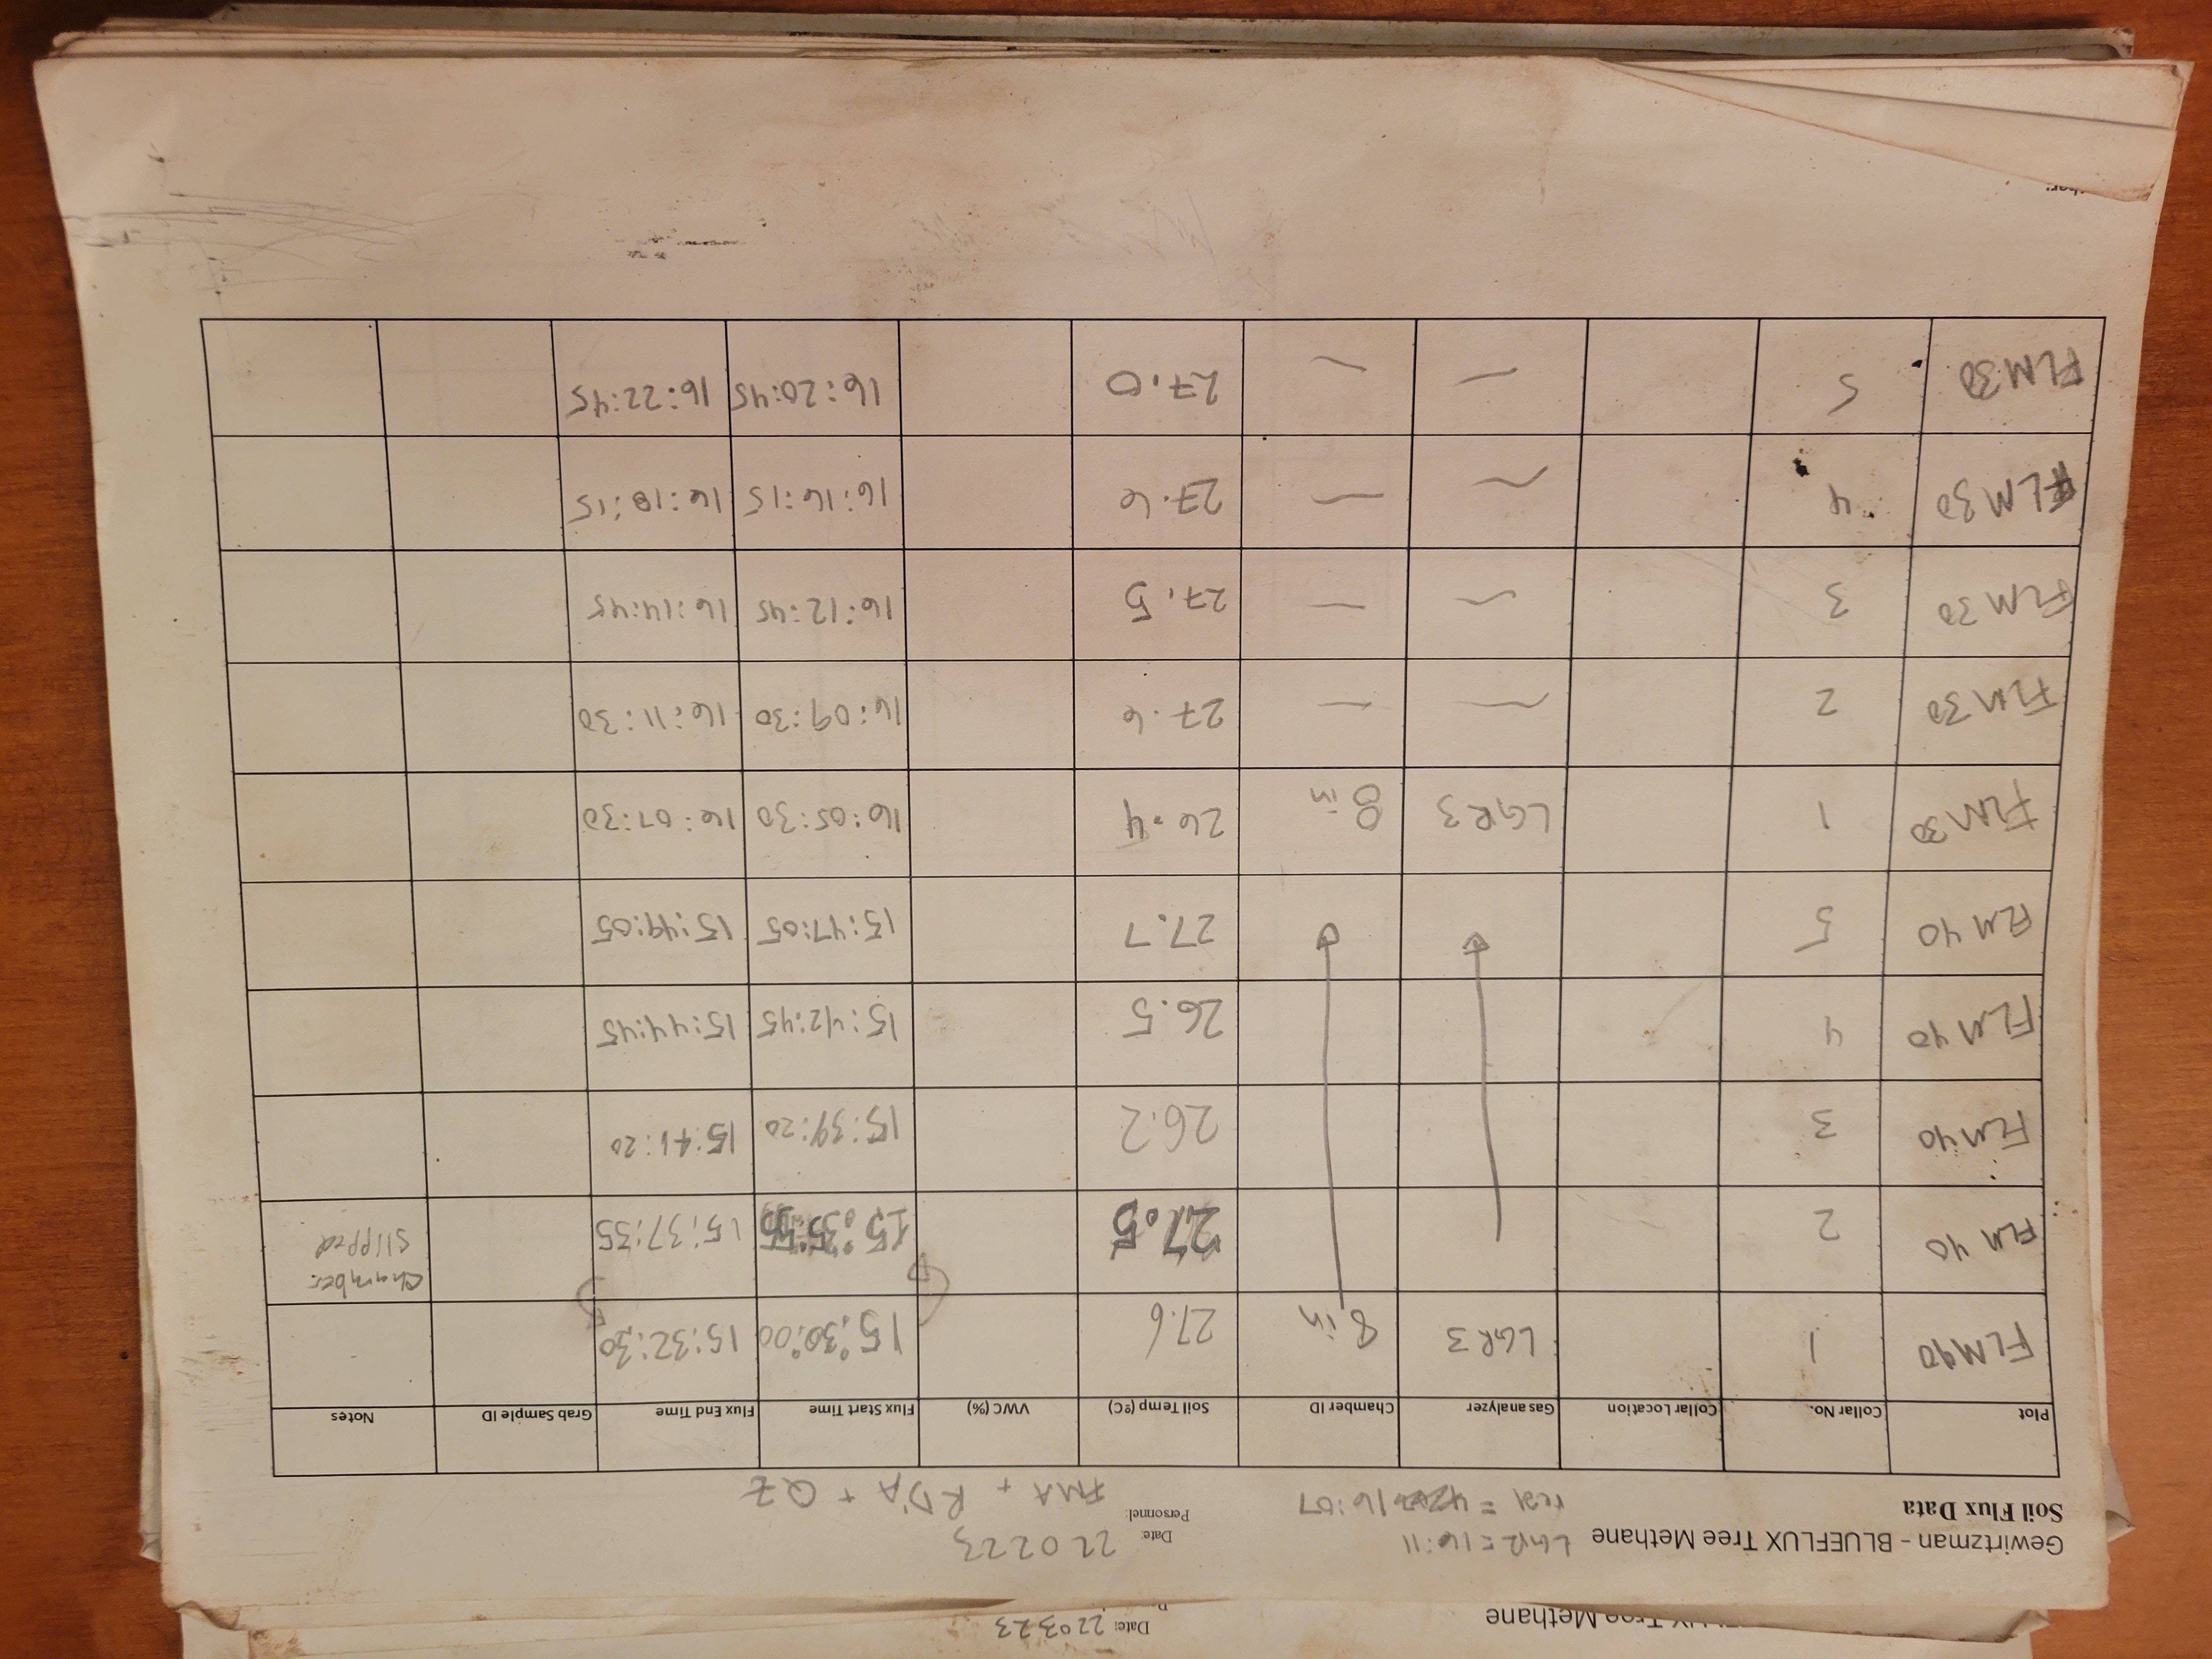 Date: 220323
UX Tree Methane
Gewirtzman - BLUEFLUX Tree Methane LGR = 16:11
Date: 220223
Soil Flux Data
real = 16:07
Personnel: FMA + RDA + QZ
Plot Collar No. Collar Location Gas analyzer Chamber ID Soil Temp (ºC) VWC (%) Flux Start Time Flux End Time Grab Sample ID Notes
FLM40 1 LGR3 8in 27.6 15:30:00 15:32:30
FLM40 2 27.5 15:35:55 15:37:55 Chamber slipped
FLM40 3 26.2 15:39:20 15:41:20
FLM40 4 26.5 15:42:45 15:44:45
FLM40 5 27.7 15:47:05 15:49:05
FLM30 1 LGR3 8in 26.4 16:05:30 16:07:30
FLM30 2 27.6 16:09:30 16:11:30
FLM30 3 27.5 16:12:45 16:14:45
FLM30 4 27.6 16:16:15 16:18:15
FLM30 5 27.0 16:20:45 16:22:45